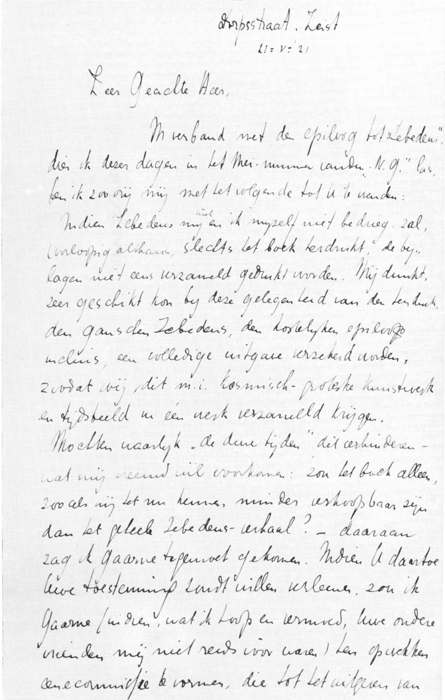 Dorpsstraat. Zeist
21=V='21
Zeer Geachte Heer,
In verband met den epiloog tot Zebedeus",
dien ik dezer dagen in het Mei-nummer van den „N. G." las,
ben ik zoo vrij mij met het volgende tot U te wenden:
Indien Zebedeus mij niet en ik myself niet bedrieg, zal,
voorloopig althans, slechts het boek herdrukt, de bij-
lagen niet eens verzameld gedrukt worden. Mij dunkt,
zeer geschikt kon bij deze gelegenheid van den herdruk
den ganschen Zebedeus, den kostelijken epiloog
incluis, een volledige uitgave verzekerd worden,
zoodat wij dit m.i. kosmisch-groteske kunstwerk
en tijdsbeeld in één werk verzameld krijgen.
Mochten waarlijk „de dure tijden" dit verhinderen –
wat mij vreemd wil voorkomen: zou het boek alleen,
zooals wij het nu kennen, minder verkoopbaar zijn
dan het geheele Zebedeus-verhaal? – daaraan
zag ik gaarne tegemoet gekomen. Indien U daartoe
Uwe toestemming zoudt willen verleenen, zou ik
gaarne (indien, wat ik hoop en vermoed, Uwe oudere
vrienden mij niet reeds vóór waren) hen opwekken
eene commissie te vormen, die tot het uitgeven van